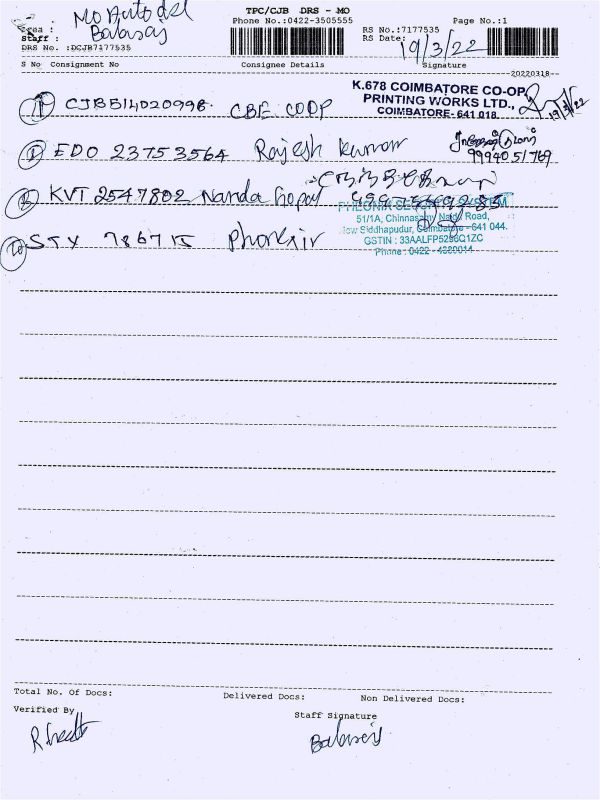 TPC/CJB DRS - MO
Mo Auto del
Phone No.:0422-3505555 Page No.:1
RS No.:7177535
Staff :
DRS No. :DCJB7177535
RS Date: 19/3/22
S No Consignment No Consignee Details Signature
20220318--
K.678 COIMBATORE CO-OP
PRINTING WORKS LTD.,
COIMBATORE- 641 018.
19/3/22
CJB514020996 CBE COOP
EDO 23753564 Rajesh kumar
99940 51769
KVT 2547802 Nanda Gopal
51/1A, Chinnasamy Naidu Road,
Siddhapudur, Coimbatore - 641 044.
GSTIN : 33AALFP5296Q1ZC
Phone : 0422 -
STX 786715
Total No. Of Docs: Delivered Docs: Non Delivered Docs:
Verified By
Staff Signature